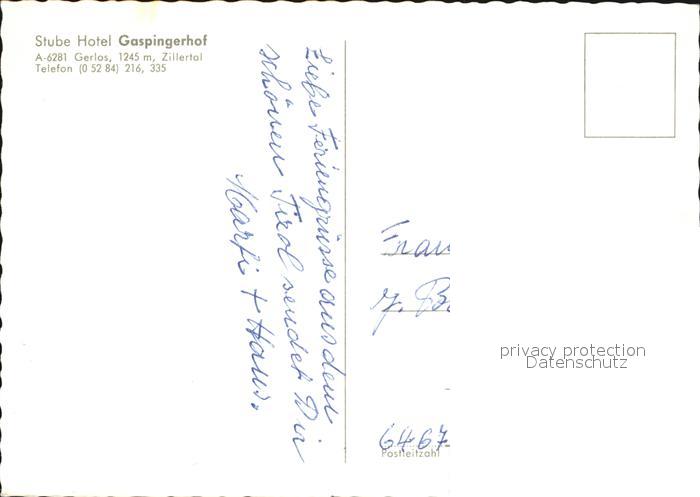 Stube Hotel Gaspingerhof
A-6281 Gerlos, 1245 m, Zillertal
Telefon (0 52 84) 216, 335
Liebe Feriengrüsse aus dem
schönen Tirol sendet Dir
+ Hans.
Frau
B.
6467
Postleitzahl
privacy protection
Datenschutz